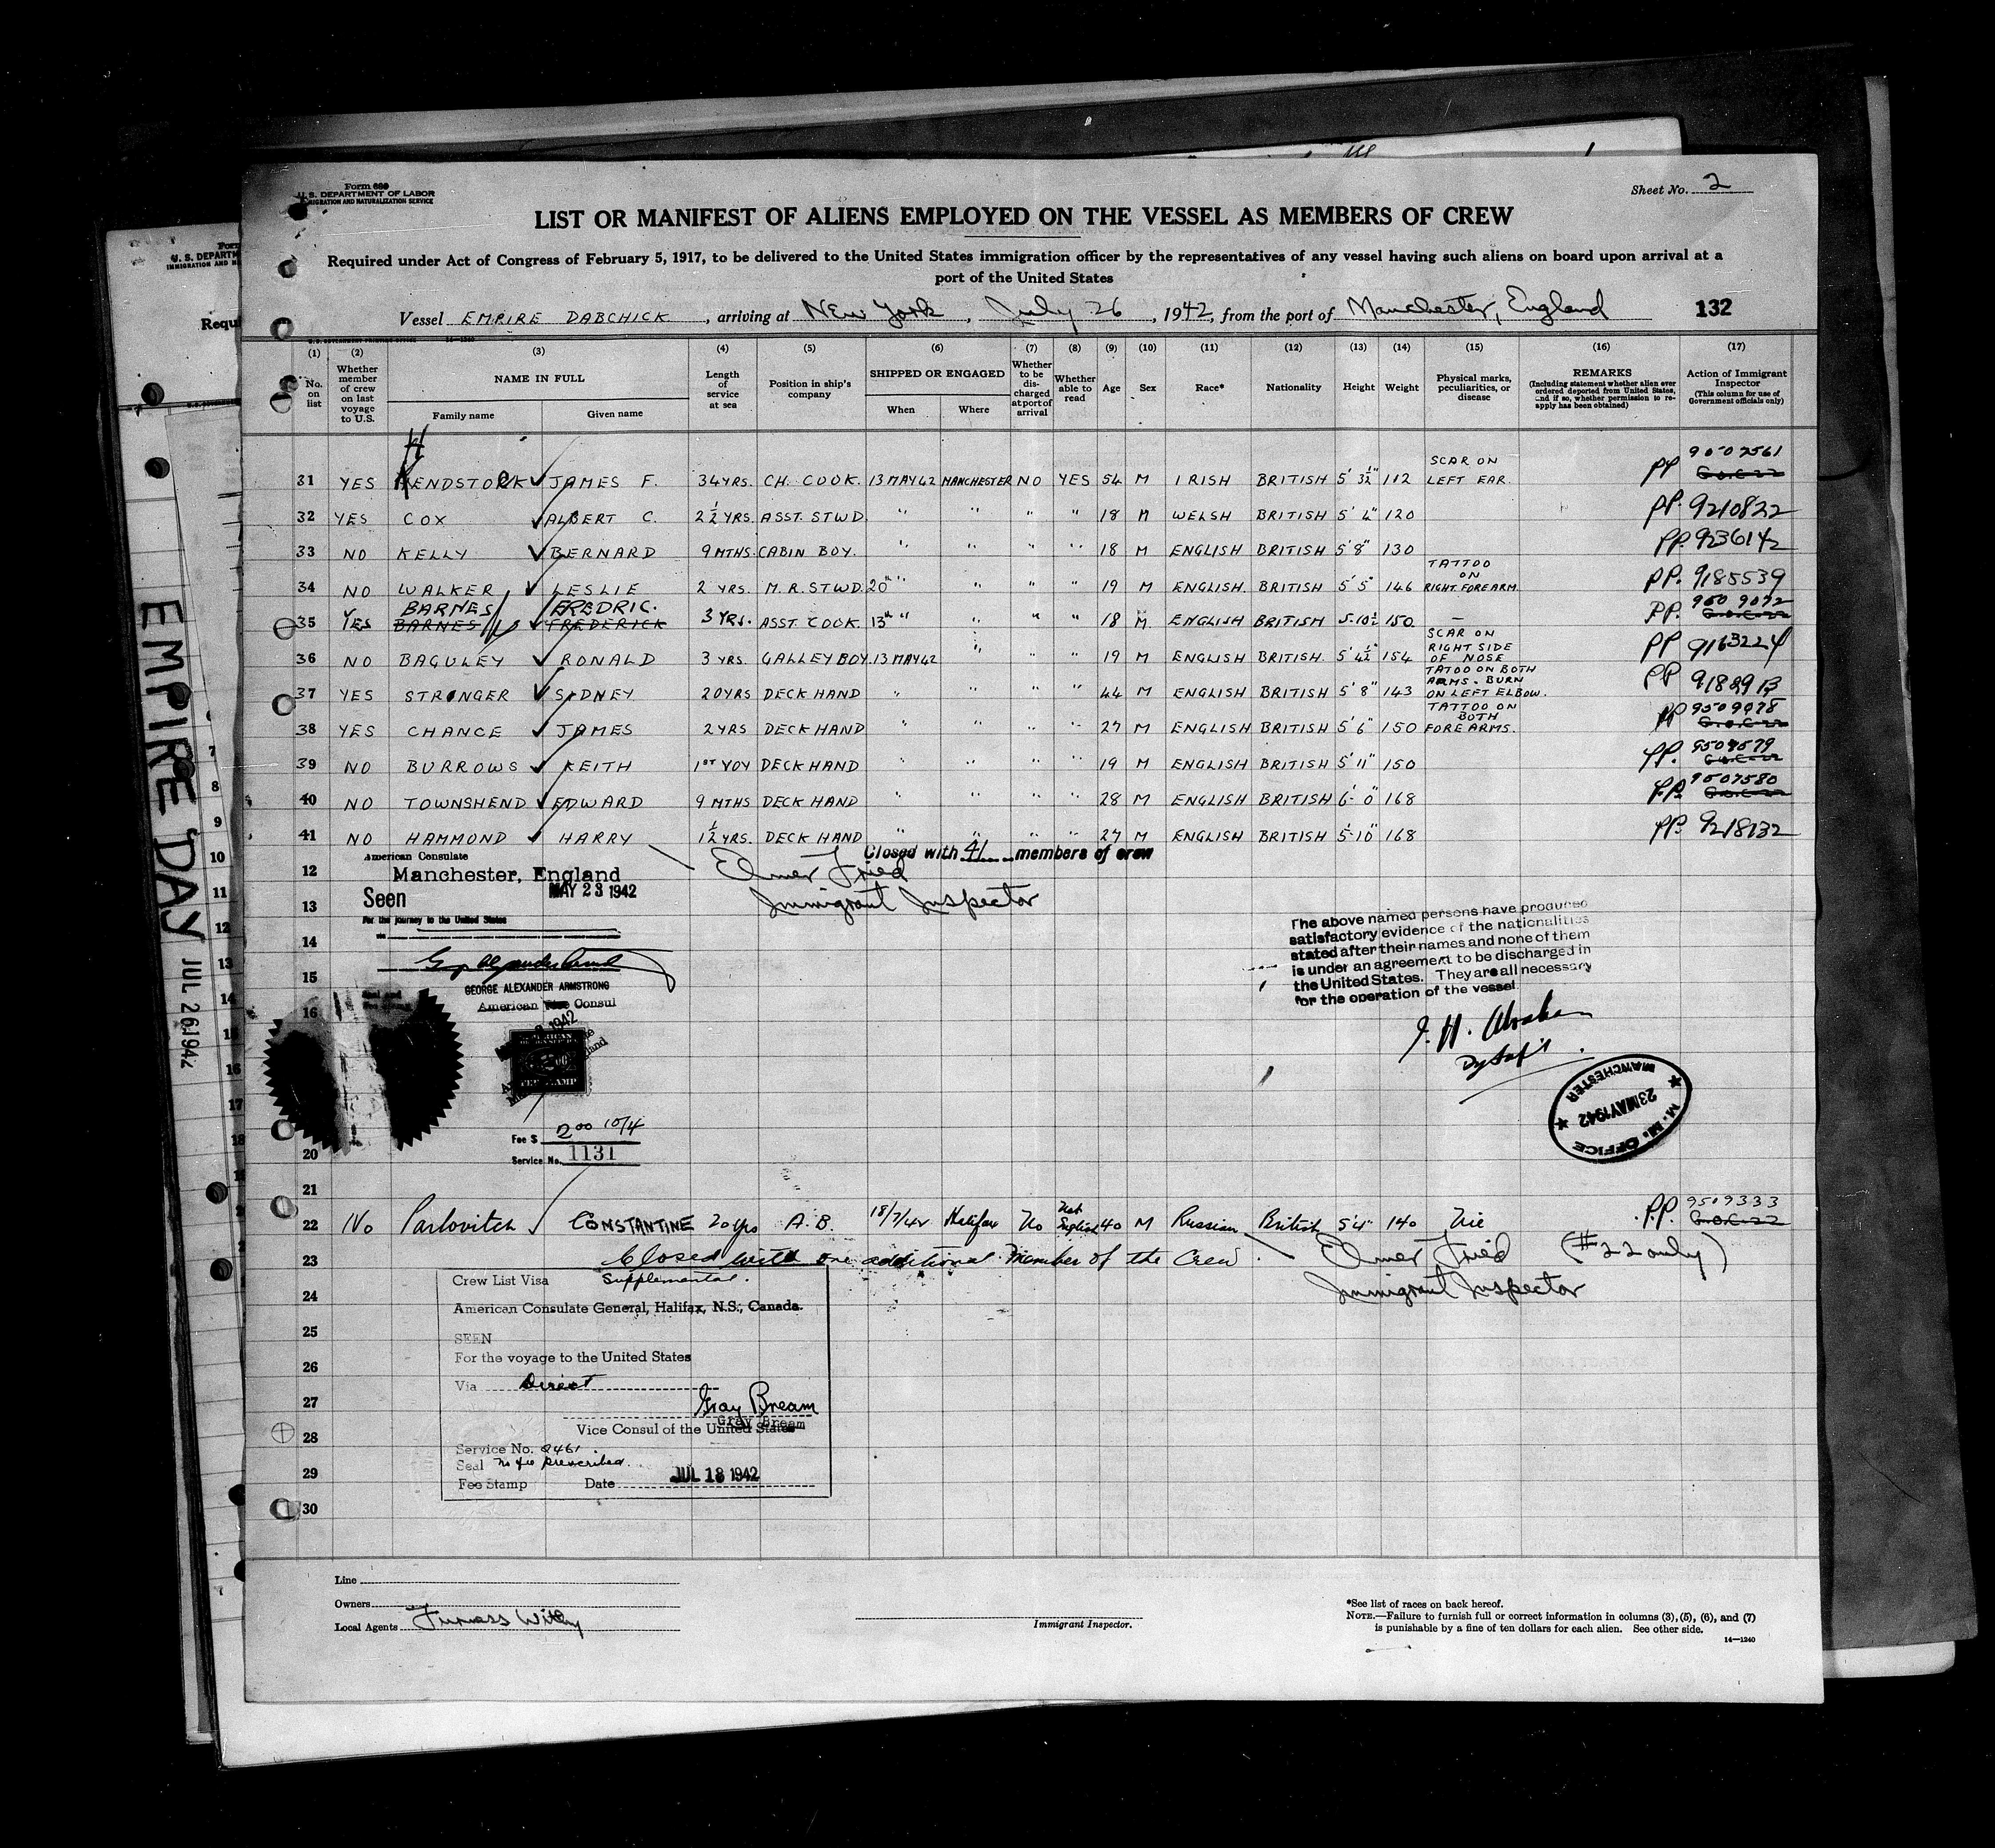 Form 689
U. S. DEPARTMENT OF LABOR
IMMIGRATION AND NATURALIZATION SERVICE
Sheet No. 2
LIST OR MANIFEST OF ALIENS EMPLOYED ON THE VESSEL AS MEMBERS OF CREW
Required under Act of Congress of February 5, 1917, to be delivered to the United States immigration officer by the representatives of any vessel having such aliens on board upon arrival at a
port of the United States
Vessel EMPIRE DABCHICK, arriving at New York, July 26, 1942, from the port of Manchester, England 132
(1) (2) (3) (4) (5) (6) (7) (8) (9) (10) (11) (12) (13) (14) (15) (16) (17)
No. on list
Whether member of crew on last voyage to U.S.
NAME IN FULL
Family name Given name
Length of service at sea
Position in ship's company
SHIPPED OR ENGAGED
When Where
Whether to be discharged at port of arrival
Whether able to read
Age
Sex
Race*
Nationality
Height
Weight
Physical marks, peculiarities, or disease
REMARKS
(Including statement whether alien ever ordered deported from United States, and if so, whether permission to reapply has been obtained)
Action of Immigrant Inspector
(This column for use of Government officials only)
31 YES HENDSTOCK JAMES F. 34 YRS. CH. COOK. 13 MAY 42 MANCHESTER NO YES 54 M IRISH BRITISH 5' 3½" 112 SCAR ON LEFT EAR. PP 9507561
32 YES COX ALBERT C. 2½ YRS. ASST. STWD. " " " " 18 M WELSH BRITISH 5' 4" 120 PP. 9210822
33 NO KELLY BERNARD 9 MTHS. CABIN BOY. " " " " 18 M ENGLISH BRITISH 5' 8" 130 PP. 9236142
34 NO WALKER LESLIE 2 YRS. M.R. STWD. 20" " " " " 19 M ENGLISH. BRITISH 5' 5" 146 TATTOO ON RIGHT. FOREARM. PP. 9185539
BARNES FREDRIC.
35 YES BARNES FREDERICK 3 YRS. ASST. COOK. 13" " " " " 18 M. ENGLISH BRITISH 5-10½ 150 — PP. 9509072
36 NO BAGULEY RONALD 3 YRS. GALLEY BOY. 13 MAY 42 " " " 19 M ENGLISH BRITISH. 5' 4½" 154 SCAR ON RIGHT SIDE OF NOSE PP 9163224
37 YES STRINGER SIDNEY 20 YRS DECK HAND " " " " 44 M ENGLISH BRITISH 5' 8" 143 TATOO ON BOTH ARMS. BURN ON LEFT ELBOW. PP 9182913
38 YES CHANCE JAMES 2 YRS DECK HAND " " " " 27 M ENGLISH BRITISH 5' 6" 150 TATTOO ON BOTH FOREARMS. PP
39 NO BURROWS KEITH 1ST VOY DECK HAND " " " " 19 M ENGLISH BRITISH 5' 11" 150 PP.
40 NO TOWNSHEND EDWARD 9 MTHS DECK HAND " " " " 28 M ENGLISH BRITISH 6'- 0" 168 P.P. 9507580
41 NO HAMMOND HARRY 1½ YRS. DECK HAND " " " " 27 M ENGLISH BRITISH 5-10" 168 PP. 9218132
Closed with 41 members of crew
Elmer Fried
Immigrant Inspector
12
13
14
15
16
20
21
American Consulate
Manchester, England
Seen MAY 23 1942
For the journey to the United States
GEORGE ALEXANDER ARMSTRONG
American Vice Consul
Fee $ 2.00 10/4
Service No. 1131
The above named persons have produced
satisfactory evidence of the nationalities
stated after their names and none of them
is under an agreement to be discharged in
the United States. They are all necessary
for the operation of the vessel
M. M. OFFICE
23 MAY 1942
MANCHESTER
22 No Pavlovitch CONSTANTINE 20 yrs A.B. 18/7/42 Halifax No Not English 40 M Russian British 5'4" 140 Nil P.P. 9509333
23 Closed with one additional member of the Crew.
Elmer Fried (#22 only)
Immigrant Inspector
24
25
26
27
28
29
30
Crew List Visa Supplemental.
American Consulate General, Halifax, N.S., Canada.
SEEN
For the voyage to the United States
Via Direct
Gray Bream
Gray Bream
Vice Consul of the United States
Service No. 2461
Seal No fee prescribed.
Fee Stamp Date JUL 18 1942
Line
Owners
Local Agents Furness Withy
Immigrant Inspector.
*See list of races on back hereof.
NOTE.—Failure to furnish full or correct information in columns (3), (5), (6), and (7)
is punishable by a fine of ten dollars for each alien. See other side.
14—1240
EMPIRE DAY JUL 26 1942
U. S. DEPARTM
IMMIGRATION AND N
Requi
7
8
9
10
11
12
13
14
15
16
17
18